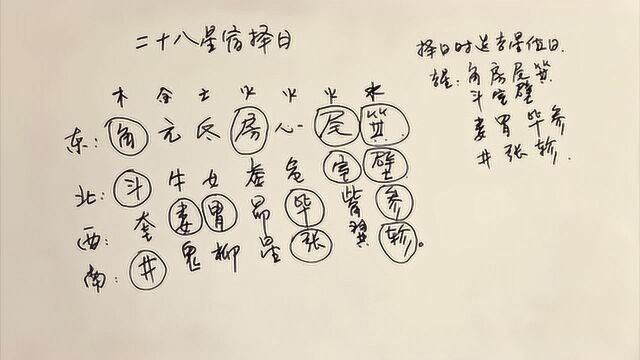 二十八星宿择日
木 金 土 火 火 火 水
东: 角 亢 氐 房 心 尾 箕
北: 斗 牛 女 虚 危 室 壁
西: 奎 娄 胃 昴 毕 觜 参
南: 井 鬼 柳 星 张 翼 轸。
择日时选吉星值日.
吉星: 角 房 尾 箕
斗 室 壁
娄 胃 毕 参
井 张 轸